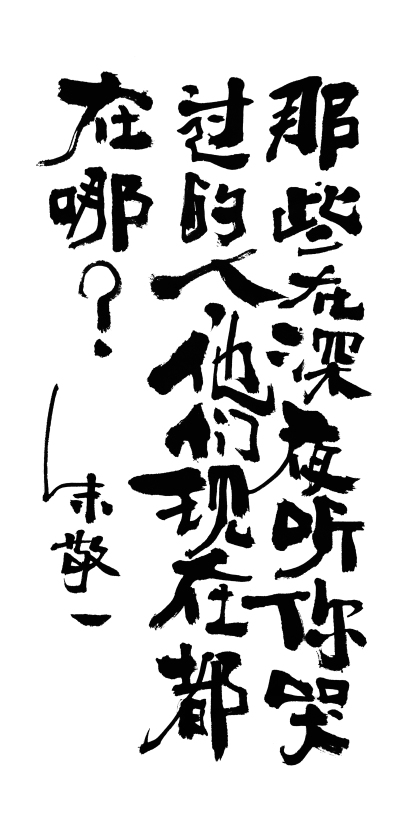 那些在深夜听你哭
过的人他们现在都
在哪？
朱敬一